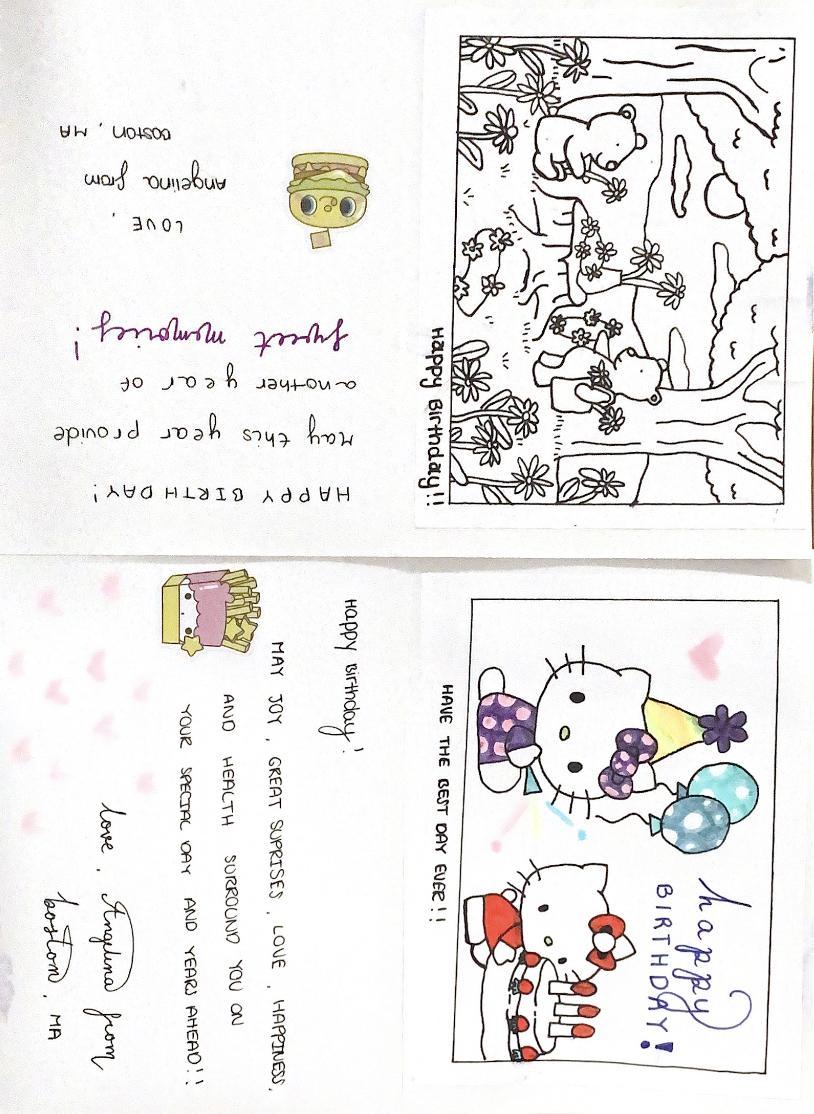 Happy Birthday!!
HAPPY BIRTHDAY!
May this year provide
another year of
sweet memories!
LOVE,
Angelina from
Boston, MA
happy
BIRTHDAY!
HAVE THE BEST DAY EVER!!
Happy Birthday!
MAY JOY, GREAT SUPRISES, LOVE, HAPPINESS,
AND HEALTH SURROUND YOU ON
YOUR SPECIAL DAY AND YEARS AHEAD!!
love, Angelina from
boston, MA